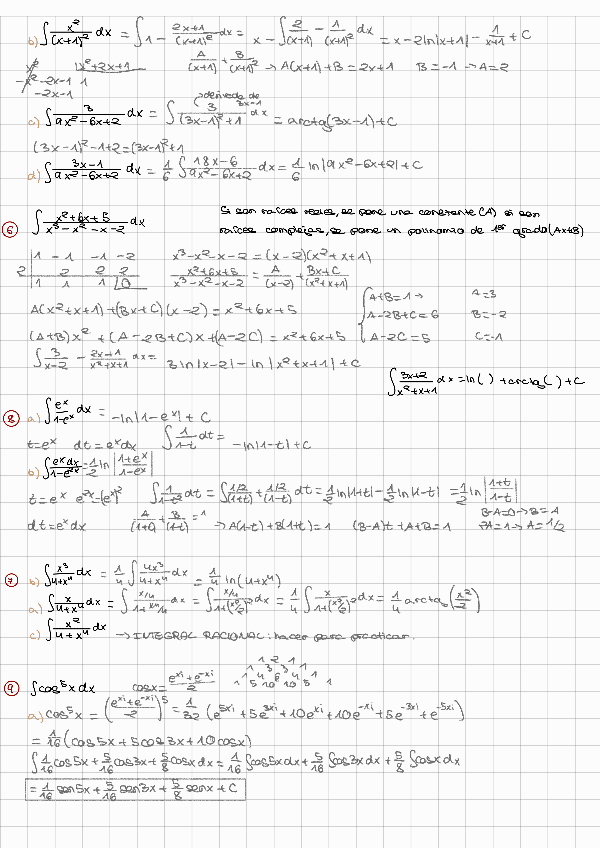 b) ∫ x²/(x+1)² dx = ∫ 1 - (2x+1)/(x+1)² dx = x - ∫ 2/(x+1) - 1/(x+1)² dx = x - 2ln|x+1| - 1/(x+1) + C
x² |x²+2x+1
-x²-2x-1 1
-2x-1
A/(x+1) + B/(x+1)² → A(x+1)+B = 2x+1 B=-1 → A=2
derivada de 3x-1
c) ∫ 3/(9x²-6x+2) dx = ∫ 3/((3x-1)²+1) dx = arctg(3x-1)+C
(3x-1)²-1+2=(3x-1)²+1
d) ∫ (3x-1)/(9x²-6x+2) dx = 1/6 ∫ (18x-6)/(9x²-6x+2) dx = 1/6 ln|9x²-6x+2|+C
6 ∫ (x²+6x+5)/(x³-x²-x-2) dx
Si son raíces reales, se pone una constante (A) si son
raíces complejas, se pone un polinomio de 1er grado (Ax+B)
1 -1 -1 -2
2 2 2 2
1 1 1 0
x³-x²-x-2 = (x-2)(x²+x+1)
(x²+6x+5)/(x³-x²-x-2) = A/(x-2) + (Bx+C)/(x²+x+1)
A(x²+x+1)+(Bx+C)(x-2) = x²+6x+5
(A+B)x² + (A-2B+C)x+(A-2C) = x²+6x+5
A+B=1 → A=3
A-2B+C=6 B=-2
A-2C=5 C=-1
∫ 3/(x-2) - (2x+1)/(x²+x+1) dx = 3ln|x-2| - ln|x²+x+1| + C
∫ (3x+2)/(x²+x+1) dx = ln( ) + arctg( ) + C
8 a) ∫ eˣ/(1-eˣ) dx = -ln|1-eˣ| + C
t=eˣ dt=eˣdx ∫ 1/(1-t) dt = -ln|1-t|+C
b) ∫ eˣdx/(1-e²ˣ) = 1/2 ln|(1+eˣ)/(1-eˣ)|
t=eˣ e²ˣ=(eˣ)² ∫ 1/(1-t²) dt = ∫ (1/2)/(1+t) + (1/2)/(1-t) dt = 1/2 ln|1+t| - 1/2 ln|1-t| = 1/2 ln|(1+t)/(1-t)|
dt=eˣdx A/(1+t) + B/(1-t) = 1 → A(1-t)+B(1+t)=1 (B-A)t+A+B=1
B-A=0→B=A
2A=1→A=1/2
7 b) ∫ x³/(4+x⁴) dx = 1/4 ∫ 4x³/(4+x⁴) dx = 1/4 ln(4+x⁴)
a) ∫ x/(4+x⁴) dx = ∫ (x/4)/(1+x⁴/4) dx = ∫ (x/4)/(1+(x²/2)²) dx = 1/4 ∫ x/(1+(x²/2)²) dx = 1/4 arctg(x²/2)
c) ∫ x²/(4+x⁴) dx → INTEGRAL RACIONAL: hacer para practicar.
9 ∫cos⁵x dx cosx = (eˣⁱ+e⁻ˣⁱ)/2
1 2 1
1 3 3 1
1 4 6 4 1
1 5 10 10 5 1
a) cos⁵x = ((eˣⁱ+e⁻ˣⁱ)/2)⁵ = 1/32 (e⁵ˣⁱ+5e³ˣⁱ+10eˣⁱ+10e⁻ˣⁱ+5e⁻³ˣⁱ+e⁻⁵ˣⁱ)
= 1/16 (cos5x+5cos3x+10cosx)
∫ 1/16 cos5x + 5/16 cos3x + 5/8 cosx dx = 1/16 ∫cos5x dx + 5/16 ∫cos3x dx + 5/8 ∫cosx dx
= 1/16 sen5x + 5/16 sen3x + 5/8 senx + C